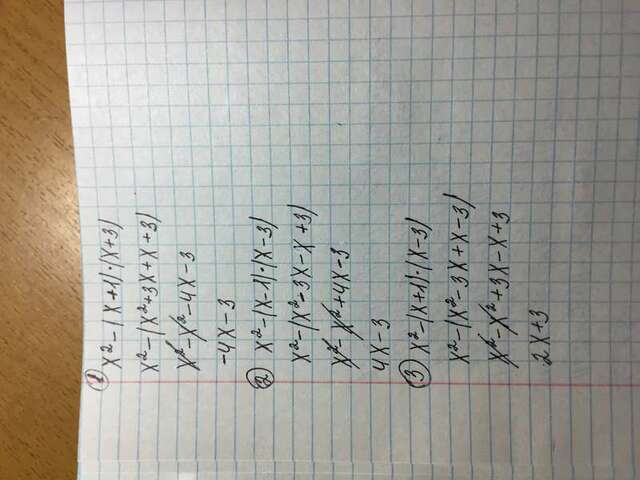 1
x² - (x+1)·(x+3)
x² - (x²+3x+x+3)
x² - x² - 4x - 3
-4x - 3
2 x² - (x-1)·(x-3)
x² - (x²-3x-x+3)
x² - x² + 4x - 3
4x - 3
3 x² - (x+1)·(x-3)
x² - (x²-3x+x-3)
x² - x² + 3x - x + 3
2x + 3